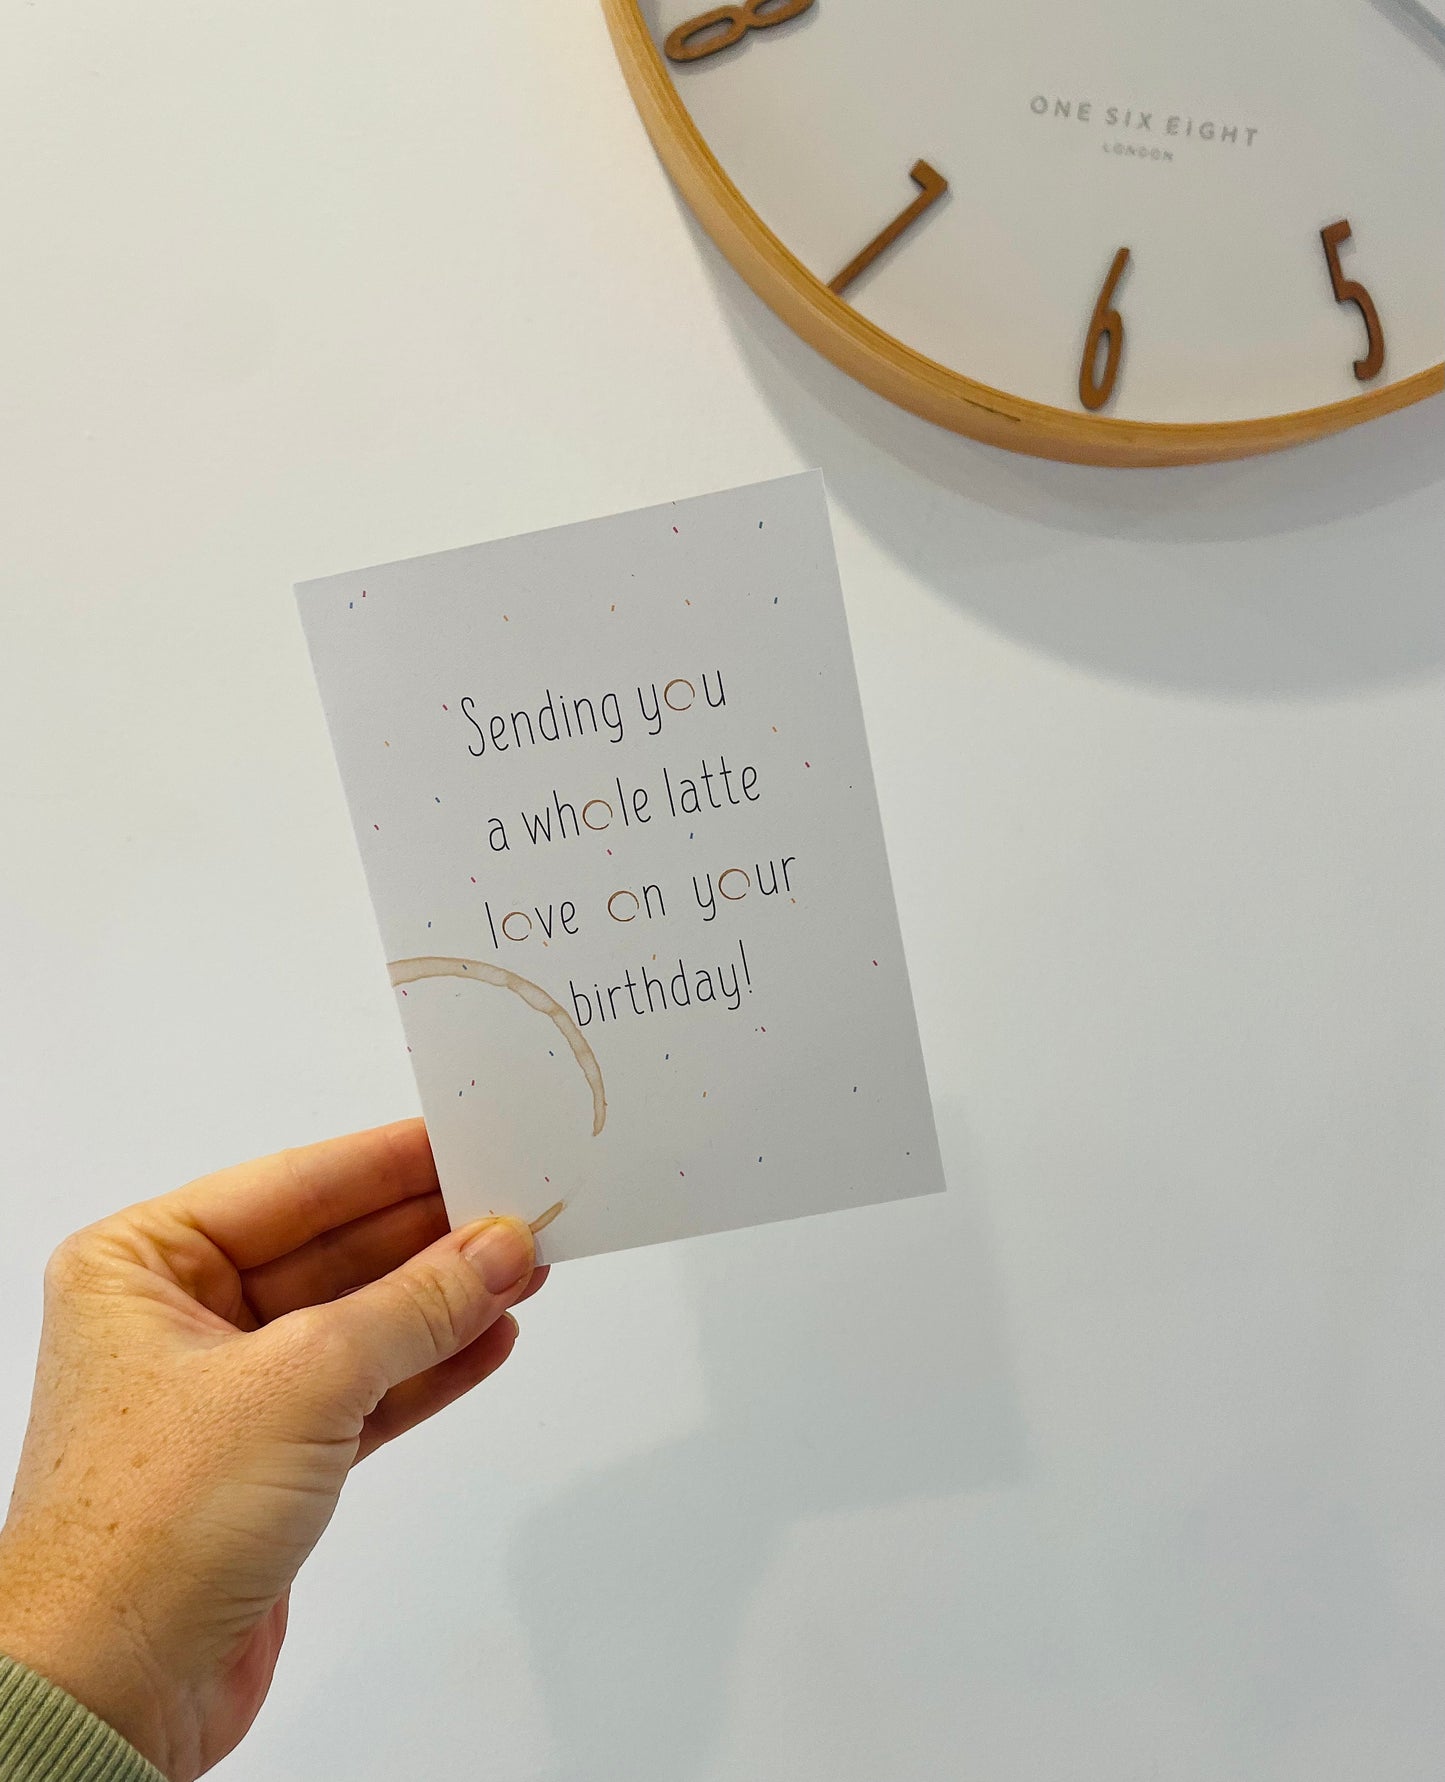 8
ONE SIX EIGHT
LONDON
7
6
5
Sending you
a whole latte
love on your
birthday!